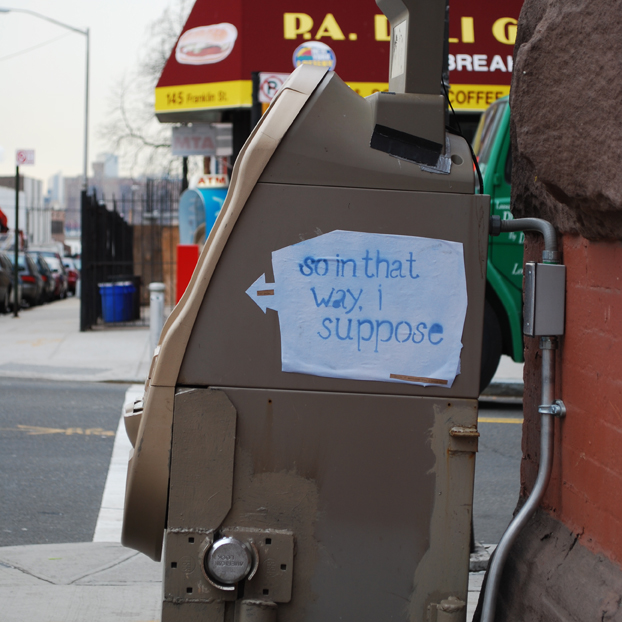 P.A. DELI G
BREAK
145 Franklin St.
COFFEE
MTA
ATM
so in that
way, i
suppose